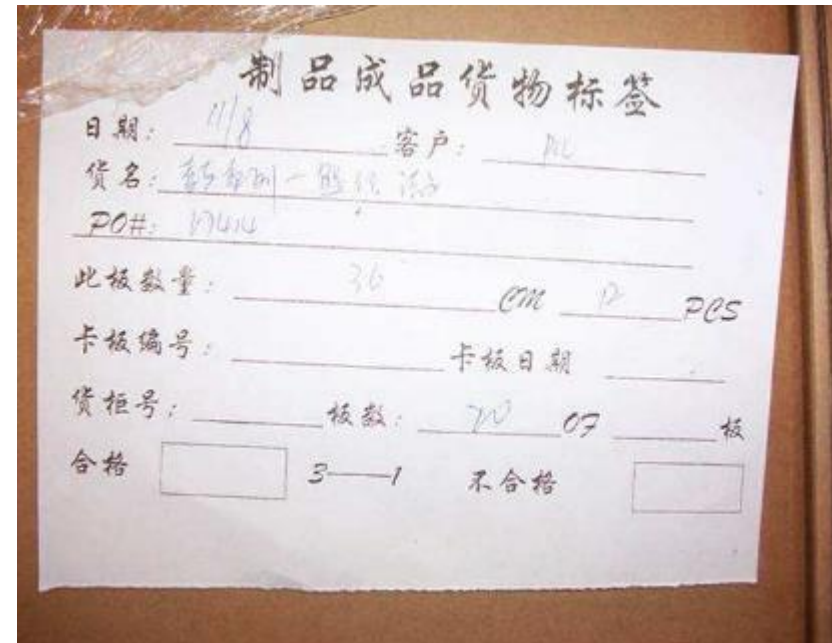 制品成品货物标签
日期: 11/8 客户:
货名:
PO#:
此板数量: 36 CM 12 PCS
卡板编号: 卡板日期
货柜号: 板数: 20 OF 板
合格 3——1 不合格